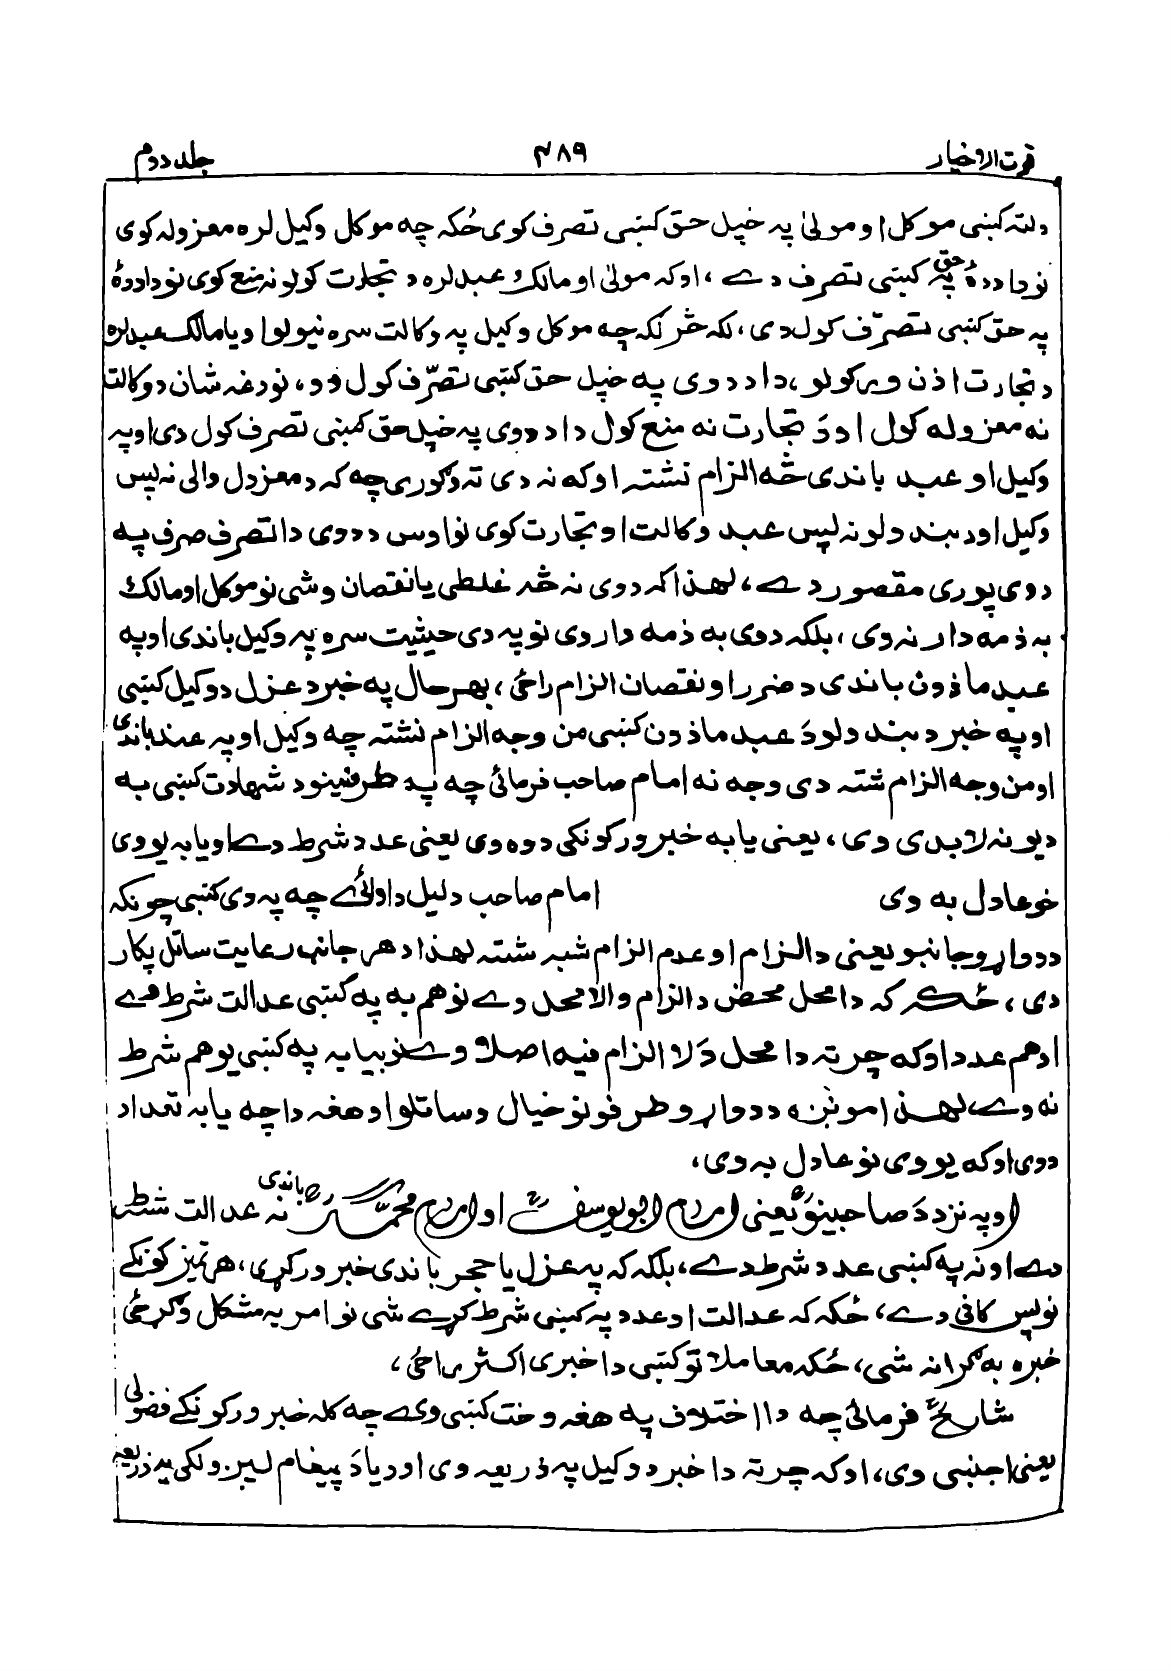 قرت الاخیار ۴۸۹ جلد دوم
دلته کښی موکل او مولیٰ په خپل حق کښی تصرف کوی ځکه چه موکل وکیل لره معزوله کوی
نو دا ددهٔ په حق کښی تصرف دے ، اوکه مولیٰ او مالک عبد لره د تجارت کولو نه منع کوی نو دا ددهٔ
په حق کښی تصرّف کول دی ، لکه څرنګه چه موکل وکیل په وکالت سره نیولو او یا مالک عبد لره
د تجارت اذن ورکولو ، دا د دوی په خپل حق کښی تصرّف کول وو ، نو دغه شان د وکالت
نه معزوله کول او دَ تجارت نه منع کول دا د دوی په خپل حق کښی تصرف کول دی او په
وکیل او عبد باندی څه الزام نشته اوکه نه دی ته وګوری چه که د معزول والی نه پس
وکیل او د بندولو نه پس عبد وکالت او تجارت کوی نو اوس د دوی دا تصرف صرف په
دوی پوری مقصور دے ، لهذا که دوی نه څه غلطی یا نقصان وشی نو موکل او مالک
به ذمه دار نه وی ، بلکه دوی به ذمه دار وی نو په دی حیثیت سره په وکیل باندی او په
عبد ماذون باندی د ضرر او نقصان الزام راځی ، بهر حال په خبر د عزل د وکیل کښی
او په خبر د بندولو دَ عبد ماذون کښی من وجه الزام نشته چه وکیل او په عبد باندی
او من وجه الزام شته دی وجه نه امام صاحب فرمائی چه په طرفینو د شهادت کښی به
دیو نه لابدی وی ، یعنی یا به خبر ورکونکی دوه وی یعنی عدد شرط دے او یا به یو وی
خو عادل به وی امام صاحب دلیل دا وائی چه په دی کښی چونکه
د دواړو جانبو یعنی د الزام او عدم الزام شبه شته لهذا د هر جانب رعایت ساتل پکار
دی ، ځکه که دا محل محض د الزام والا محل وے نو هم به په کښی عدالت شرط وے
او هم عدد اوکه چرته دا محل دَ لا الزام فیه اصلا وے نو بیا به په کښی یو هم شرط
نه وے ، لهذا مونږه د دواړو طرفونو خیال وساتلو او هغه دا چه یا به تعداد
دوی اوکه یو وی نو عادل به وی ،
او په نزد دَ صاحبینو یعنی امام ابویوسف او امام محمد باندی نه عدالت شرط
دے او نه په کښی عدد شرط دے ، بلکه که په عزل یا حجر باندی خبر ورکړی ، هر تمیز کونکے
نو بس کافی دے ، ځکه که عدالت او عدد په کښی شرط کړے شی نو امر به مشکل وګرځی
خبره به ګرانه شی ، ځکه معاملاتو کښی دا خبری اکثر راځی ،
شارح فرمائی چه دا اختلاف په هغه وخت کښی وی چه کله خبر ورکونکے فضولی
یعنی اجنبی وی ، اوکه چرته دا خبر د وکیل په ذریعه وی او یا دَ پیغام لیږونکی په ذریعه